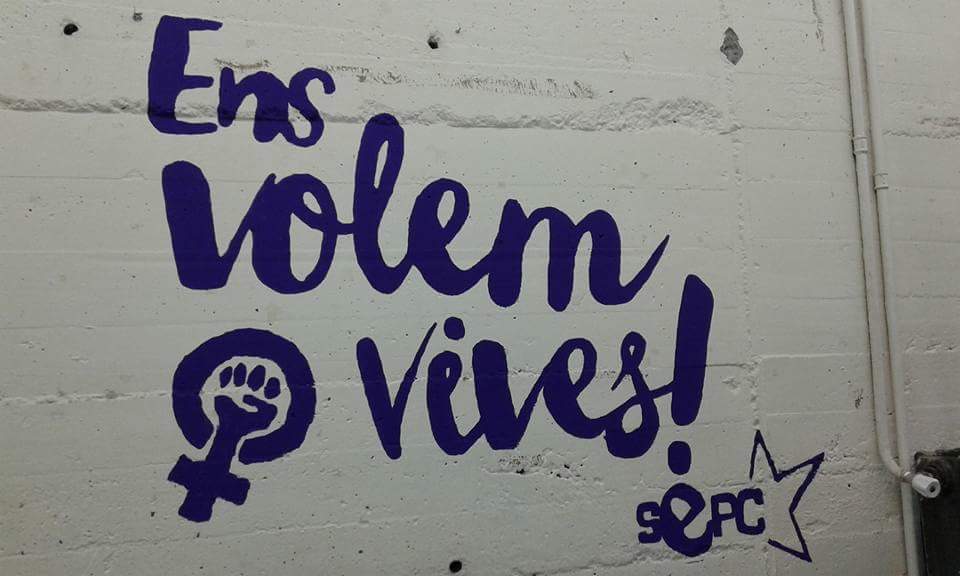 Ens
Volem
Vives!
sepc